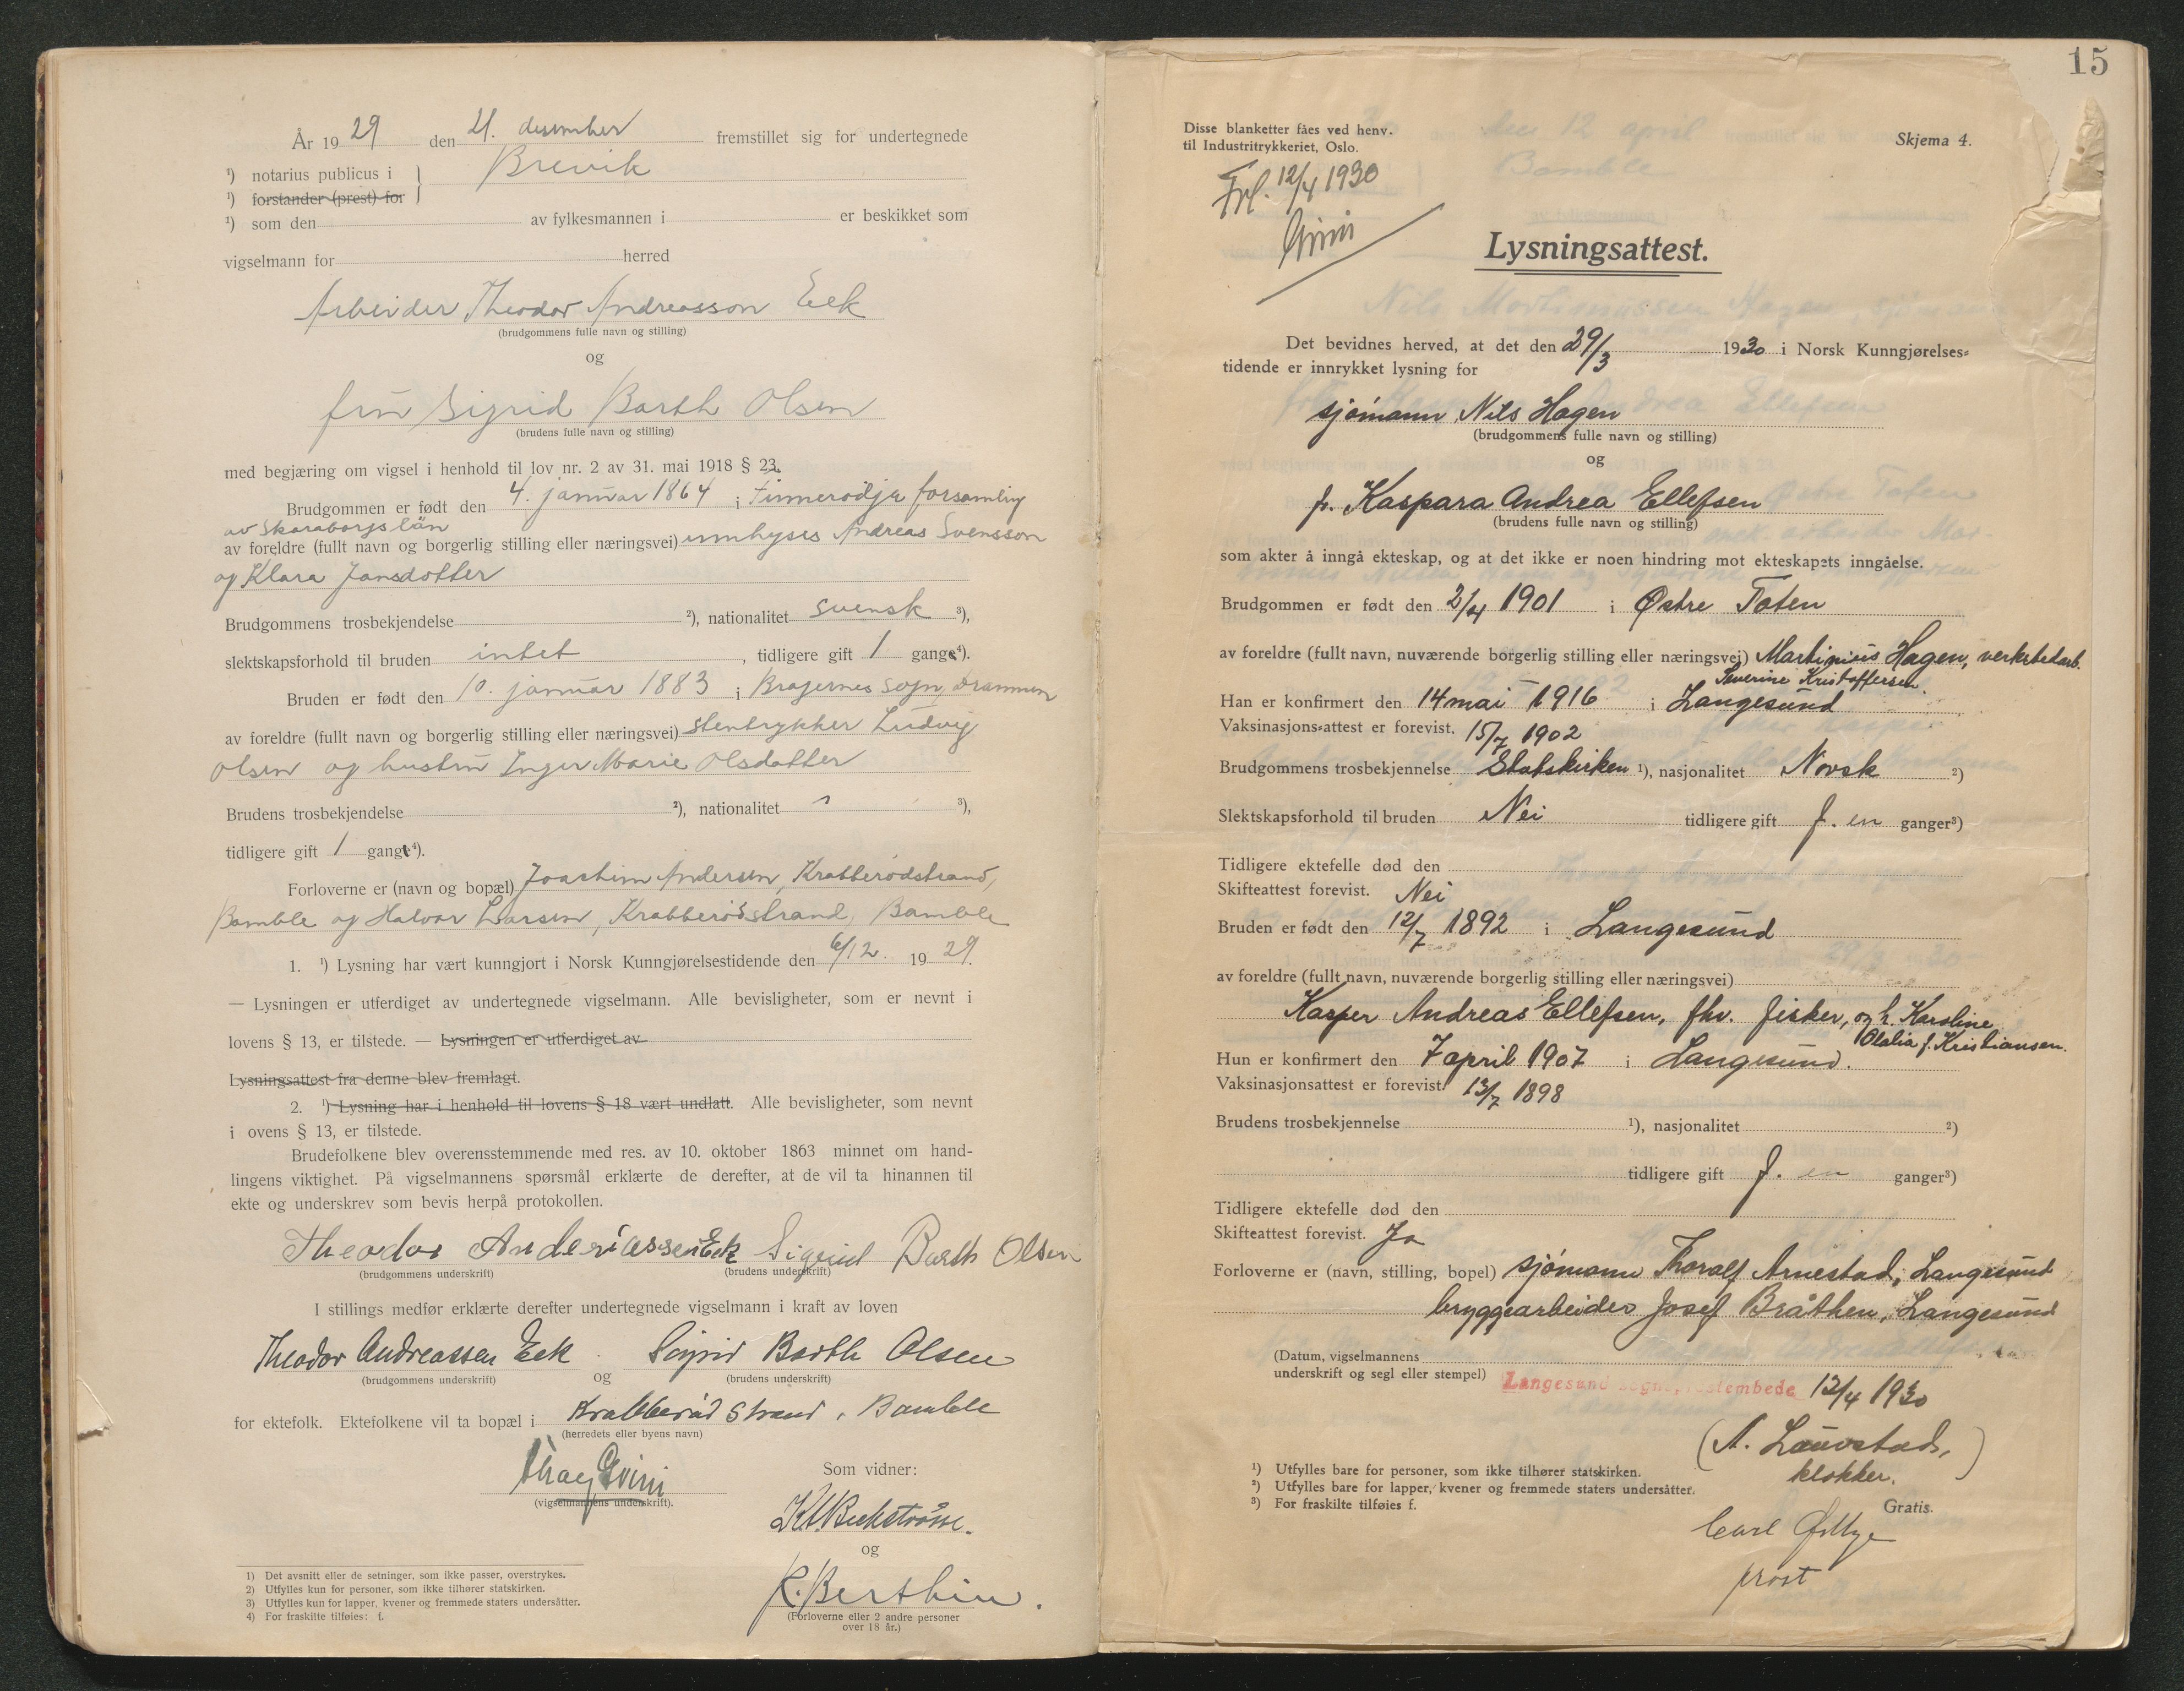 År 1929 den 21. desember fremstillet sig for undertegnede
¹) notarius publicus i } Brevik
¹) forstander (prest) for
¹) som den av fylkesmannen i er beskikket som
vigselmann for herred
Arbeider Theodor Andreasson Eek
(brudgommens fulle navn og stilling)
og
fru Sigrid Barth Olsen
(brudens fulle navn og stilling)
med begjæring om vigsel i henhold til lov nr. 2 av 31. mai 1918 § 23.
Brudgommen er født den 4. januar 1864 i Finnerödja forsamling
av Skaraborgs län
av foreldre (fullt navn og borgerlig stilling eller næringsvei) innhyses Andreas Svensson
og Klara Jansdotter
Brudgommens trosbekjendelse ²), nationalitet svensk ³),
slektskapsforhold til bruden intet, tidligere gift 1 gange⁴).
Bruden er født den 10. januar 1883 i Bragernes sogn, Drammen
av foreldre (fullt navn og borgerlig stilling eller næringsvei) stentrykker Ludvig
Olsen og hustru Inger Marie Olsdatter
Brudens trosbekjendelse ²), nationalitet ³),
tidligere gift 1 gange⁴).
Forloverne er (navn og bopæl) Joachim Andersen, Krabberødstrand,
Bamble og Halvor Larsen, Krabberødstrand, Bamble
1. ¹) Lysning har vært kunngjort i Norsk Kunngjørelsestidende den 6/12. 1929.
— Lysningen er utferdiget av undertegnede vigselmann. Alle bevisligheter, som er nevnt i
lovens § 13, er tilstede. — Lysningen er utferdiget av
Lysningsattest fra denne blev fremlagt.
2. ¹) Lysning har i henhold til lovens § 18 vært undlatt. Alle bevisligheter, som nevnt
i ovens § 13, er tilstede.
Brudefolkene blev overensstemmende med res. av 10. oktober 1863 minnet om hand-
lingens viktighet. På vigselmannens spørsmål erklærte de derefter, at de vil ta hinannen til
ekte og underskrev som bevis herpå protokollen.
Theodor Anderiassen Eek Sigrid Barth Olsen
(brudgommens underskrift) (brudens underskrift)
I stillings medfør erklærte derefter undertegnede vigselmann i kraft av loven
Theodor Andreassen Eek og Sigrid Barth Olsen
(brudgommens underskrift) (brudens underskrift)
for ektefolk. Ektefolkene vil ta bopæl i Krabberød strand, Bamble
(herredets eller byens navn)
(vigselmannens underskrift).
Som vidner:
og
R. Berthin.
(Forloverne eller 2 andre personer
over 18 år.)
1) Det avsnitt eller de setninger, som ikke passer, overstrykes.
2) Utfylles kun for personer, som ikke tilhører statskirken.
3) Utfylles kun for lapper, kvener og fremmede staters undersåtter.
4) For fraskilte tilføies: f.
15
Disse blanketter fåes ved henv.
til Industritrykkeriet, Oslo.
Skjema 4.
Frl. 12/4 1930
Lysningsattest.
Det bevidnes herved, at det den 29/3 1930 i Norsk Kunngjørelses-
tidende er innrykket lysning for
sjømann Nils Hagen
(brudgommens fulle navn og stilling)
og
fr. Kaspara Andrea Ellefsen
(brudens fulle navn og stilling)
som akter å inngå ekteskap, og at det ikke er noen hindring mot ekteskapets inngåelse.
Brudgommen er født den 2/4 1901 i Østre Toten
av foreldre (fullt navn, nuværende borgerlig stilling eller næringsvei) Martinius Hagen, verkstedarb.
Severine Kristoffersen.
Han er konfirmert den 14 mai 1916 i Langesund
Vaksinasjonsattest er forevist. 15/7 1902
Brudgommens trosbekjennelse Statskirken ¹), nasjonalitet Norsk ²)
Slektskapsforhold til bruden Nei tidligere gift f. en ganger³)
Tidligere ektefelle død den
Skifteattest forevist. Nei
Bruden er født den 12/7 1892 i Langesund
av foreldre (fullt navn, nuværende borgerlig stilling eller næringsvei)
Kasper Andreas Ellefsen, fhv. fisker, og h. Karoline
Olalia f. Kristiansen.
Hun er konfirmert den 7 april 1907 i Langesund.
Vaksinasjonsattest er forevist. 13/7 1898
Brudens trosbekjennelse ¹), nasjonalitet ²)
tidligere gift f. en ganger³)
Tidligere ektefelle død den
Skifteattest forevist. Ja
Forloverne er (navn, stilling, bopel) sjømann Thoralf Arnestad, Langesund
bryggearbeider Josef Bråthen, Langesund
(Datum, vigselmannens
underskrift og segl eller stempel) Langesund sogneprestembede 12/4 1930
(A. Lauvstad,)
klokker.
¹) Utfylles bare for personer, som ikke tilhører statskirken.
²) Utfylles bare for lapper, kvener og fremmede staters undersåtter.
³) For fraskilte tilføies f.
Gratis.
Carl
prost